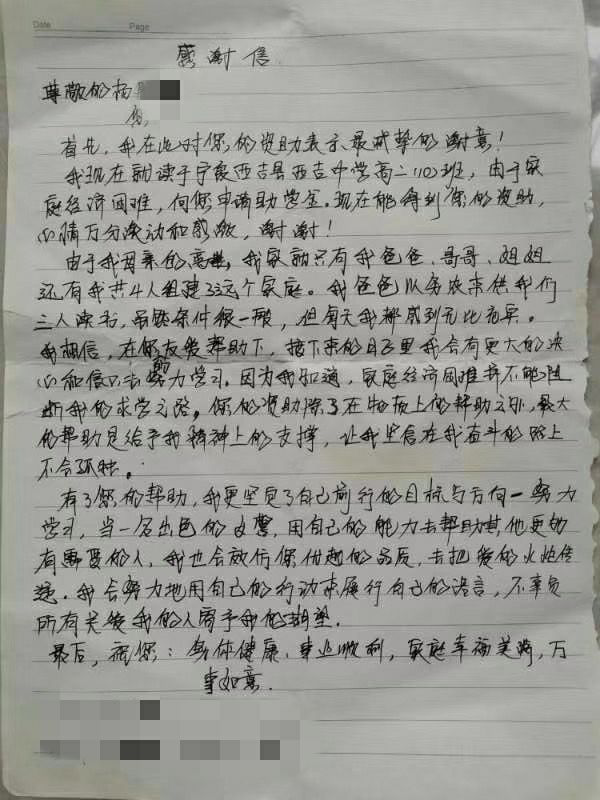 Date Page
感谢信
尊敬的杨
首先,我在此对您的资助表示最诚挚的谢意!
我现在就读于宁夏西吉县西吉中学高二(10)班,由于家
庭经济困难,向您申请助学金。现在能得到您的资助,
心情万分激动和感激,谢谢!
由于我母亲的离世,我家就只有我爸爸、哥哥、姐姐
还有我共4人组建了这个家庭。我爸爸以务农来供我们
三人读书,虽然条件很一般,但每天我都感到无比充实。
我相信,在您的友爱帮助下,接下来的日子里我会有更大的决
心和信心去努力学习。因为我知道,家庭经济困难并不能阻
断我的求学之路。您的资助除了在物质上的帮助之外,最大
的帮助是给予我精神上的支撑,让我坚信在我奋斗的路上
不会孤独。
有了您的帮助,我更坚定了自己前行的目标与方向—努力
学习,当一名出色的交警,用自己的能力去帮助其他更的
有需要的人,我也会效仿您优越的品质,去把爱的火炬传
递。我会努力地用自己的行动来履行自己的诺言,不辜负
所有关爱我的人寄予我的期望。
最后,祝您:身体健康、事业顺利,家庭幸福美满,万
事如意.